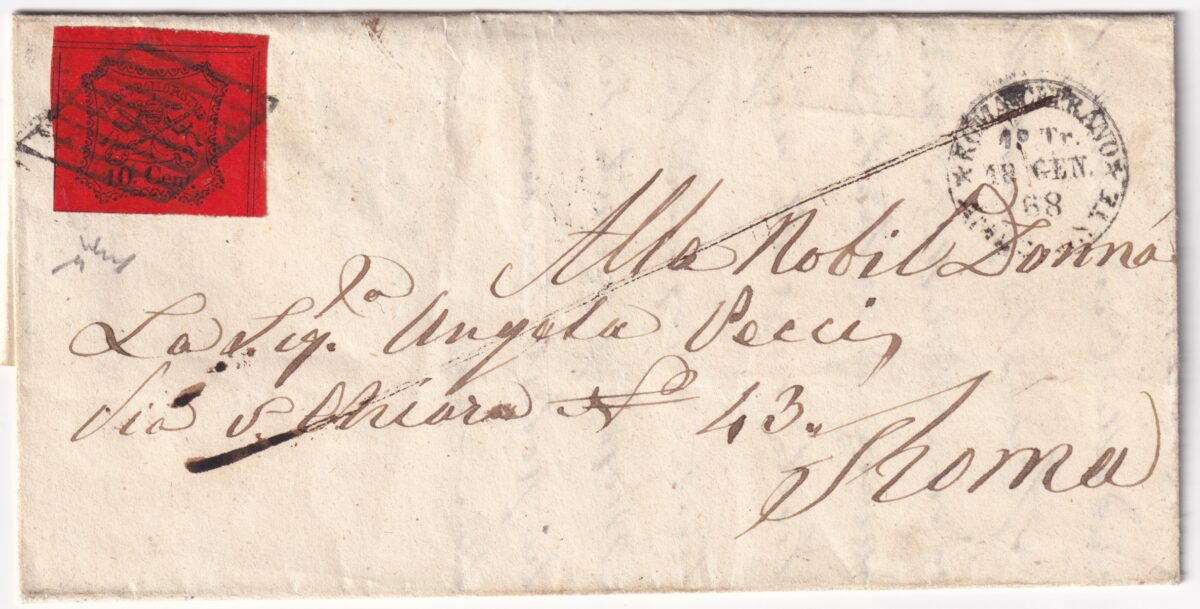 10 Cent.
★ ROMA CEPRANO ★
1ª Tr.
18 GEN.
68
Alla Nobil Donna
La Sig.ra Angela Pecci,
Via S. Chiara Nº 43.
Roma